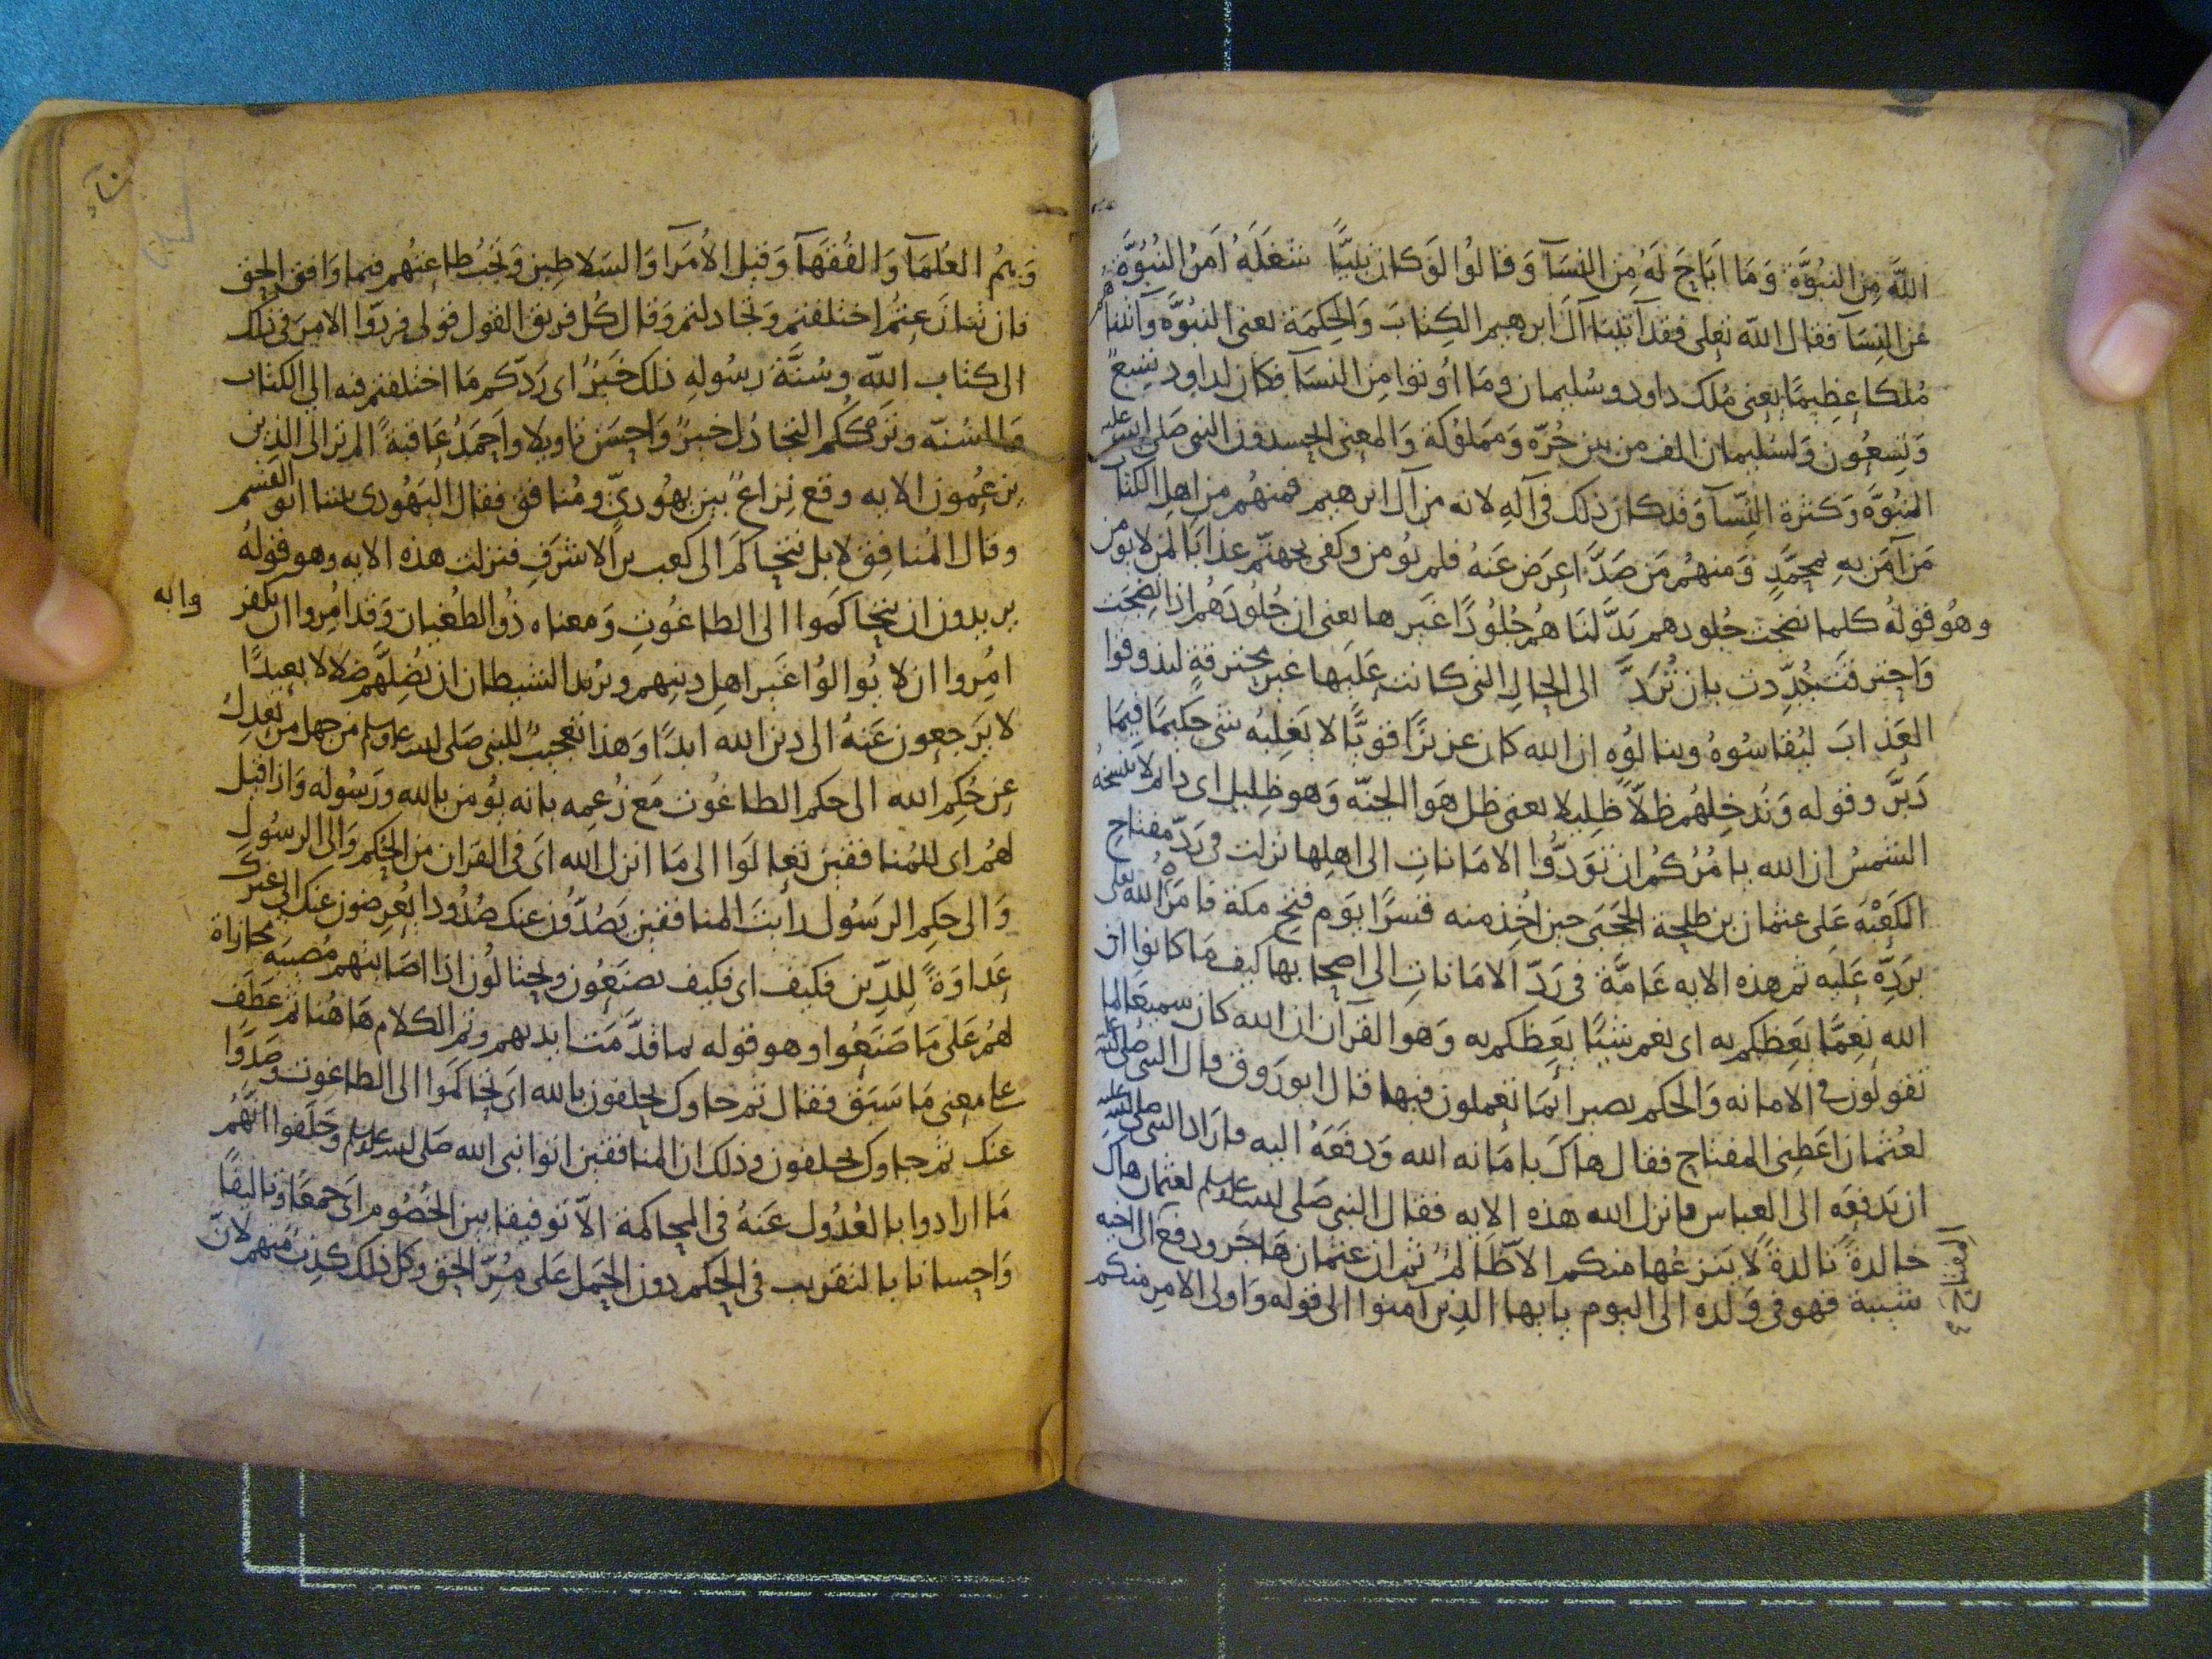 الله من النبوة وما اباح له من النسآ وقالوا لو كان نبيًّا شغله امر النبوة
عن النسآ فقال الله تعلى فقد آتينا آل ابرهيم الكتاب والحكمة يعنى النبوة وآتيناهم
ملكا عظيما يعنى ملك داود وسليمان وما اوتوا من النسآ فكان لداود تسع
وتسعون ولسليمان الف من بين حرّه ومملوكة والمعنى ايحسدون النبى صلى الله عليه
النبوة وكثرة النسآ وقد كان ذلك فى آله لانه من آل ابرهيم فمنهم من اهل الكتاب
من آمن به بمحمد ومنهم من صدّ اعرض عنه فلم يؤمن وكفى بجهنم عذابا لمن لا يؤمن
وهو قوله كلما نضجت جلودهم بدّلناهم جلودًا غيرها يعنى ان جلودهم اذا نضجت
واحترقت جُدّدت بان تُردّ الى الحال التى كانت عليها غير محترقة ليذوقوا
العذاب ليقاسوه وينالوه ان الله كان عزيزًا قويًّا لا يغلبه شى حكيما فيما
دبّر وقوله وندخلهم ظلّا ظليلا يعنى ظل هوا الجنّه وهو ظليل اى دائم لا تنسخه
الشمس ان الله يامركم ان تؤدّوا الامانات الى اهلها نزلت فى ردّ مفتاح
الكعبه على عثمان بن طلحة الحجبى حين اخذ منه قسرًا يوم فتح مكة فامره الله تعلى
بردّه عليه ثم هذه الايه عامّة فى ردّ الامانات الى اصحابها كيف ما كانوا ان
الله نعمّا يعظكم به اى نعم شيئا يعظكم به وهو القرآن ان الله كان سميعا لما
تقولون فى الامانه والحكم بصيرا بما تعملون فيها قال ابو روق قال النبى صلى الله عليه
لعثمان اعطنى المفتاح فقال هاك بامانه الله ودفعه اليه فاراد النبى صلى الله عليه
ان يدفعه الى العباس فانزل الله هذه الايه فقال النبى صلى الله عليه وسلم لعثمان هاك
خالدة تالدة لا ينزعها منكم الا ظالم ثم ان عثمان هاجر ودفع الى اخيه
شيبة فهو فى ولده الى اليوم يايها الذين آمنوا الى قوله واولى الامر منكم
وهم العلمآ والفقهآ وقيل الأمرآ والسلاطين وتجب طاعتهم فيما وافق الحق
فان تنازعتم اختلفتم وتجادلتم وقال كل فريق القول قولى فردّوا الامر فى ذلك
الى كتاب الله وسنّة رسوله ذلك خير اى ردّكم ما اختلفتم فيه الى الكتاب
والسنّه وترككم التجادل خير واحسن تاويلا واحمد عاقبة الم تر الى الذين
يزعمون الايه وقع نزاع بين يهودىّ ومنافق فقال اليهودى بيننا ابو القسم
وقال المنافق لا بل نتحاكم الى كعب بن الاشرف فنزلت هذه الايه وهو قوله
يريدون ان يتحاكموا الى الطاغوت ومعناه ذو الطغيان وقد امروا ان يكفروا به
امروا ان لا يوالوا غير اهل دينهم ويريد الشيطان ان يضلهم ضلالا بعيدًا
لا يرجعون عنه الى دين الله ابدًا وهذا تعجيب للنبى صلى الله عليه وسلم من جهل من يعدل
عن حكم الله الى حكم الطاغوت مع زعمه بانه يؤمن بالله ورسوله واذا قيل
لهم اى للمنافقين تعالوا الى ما انزل الله اى فى القران من الحكم والى الرسول
والى حكم الرسول رأيت المنافقين يصدّون عنك صدودا يعرضون عنك الى غيرك
عداوة للدّين فكيف اى فكيف يصنعون ويحتالون اذا اصابتهم مصيبه مجازاة
لهم على ما صنعوا وهو قوله بما قدّمت ايديهم وتم الكلام هاهنا ثم عطف
على معنى ما سبق فقال ثم جاوك يحلفون بالله اى تحاكموا الى الطاغوت وصدّوا
عنك ثم جاوك يحلفون وذلك ان المنافقين اتوا نبى الله صلى الله عليه وسلم وحلفوا انهم
ما ارادوا بالعدول عنه فى المحاكمة الّا توفيقا بين الخصوم اى جمعا وتاليفًا
واحسانا بالتقريب فى الحكم دون الحمل على مُرّ الحق وكل ذلك كذب منهم لانّ